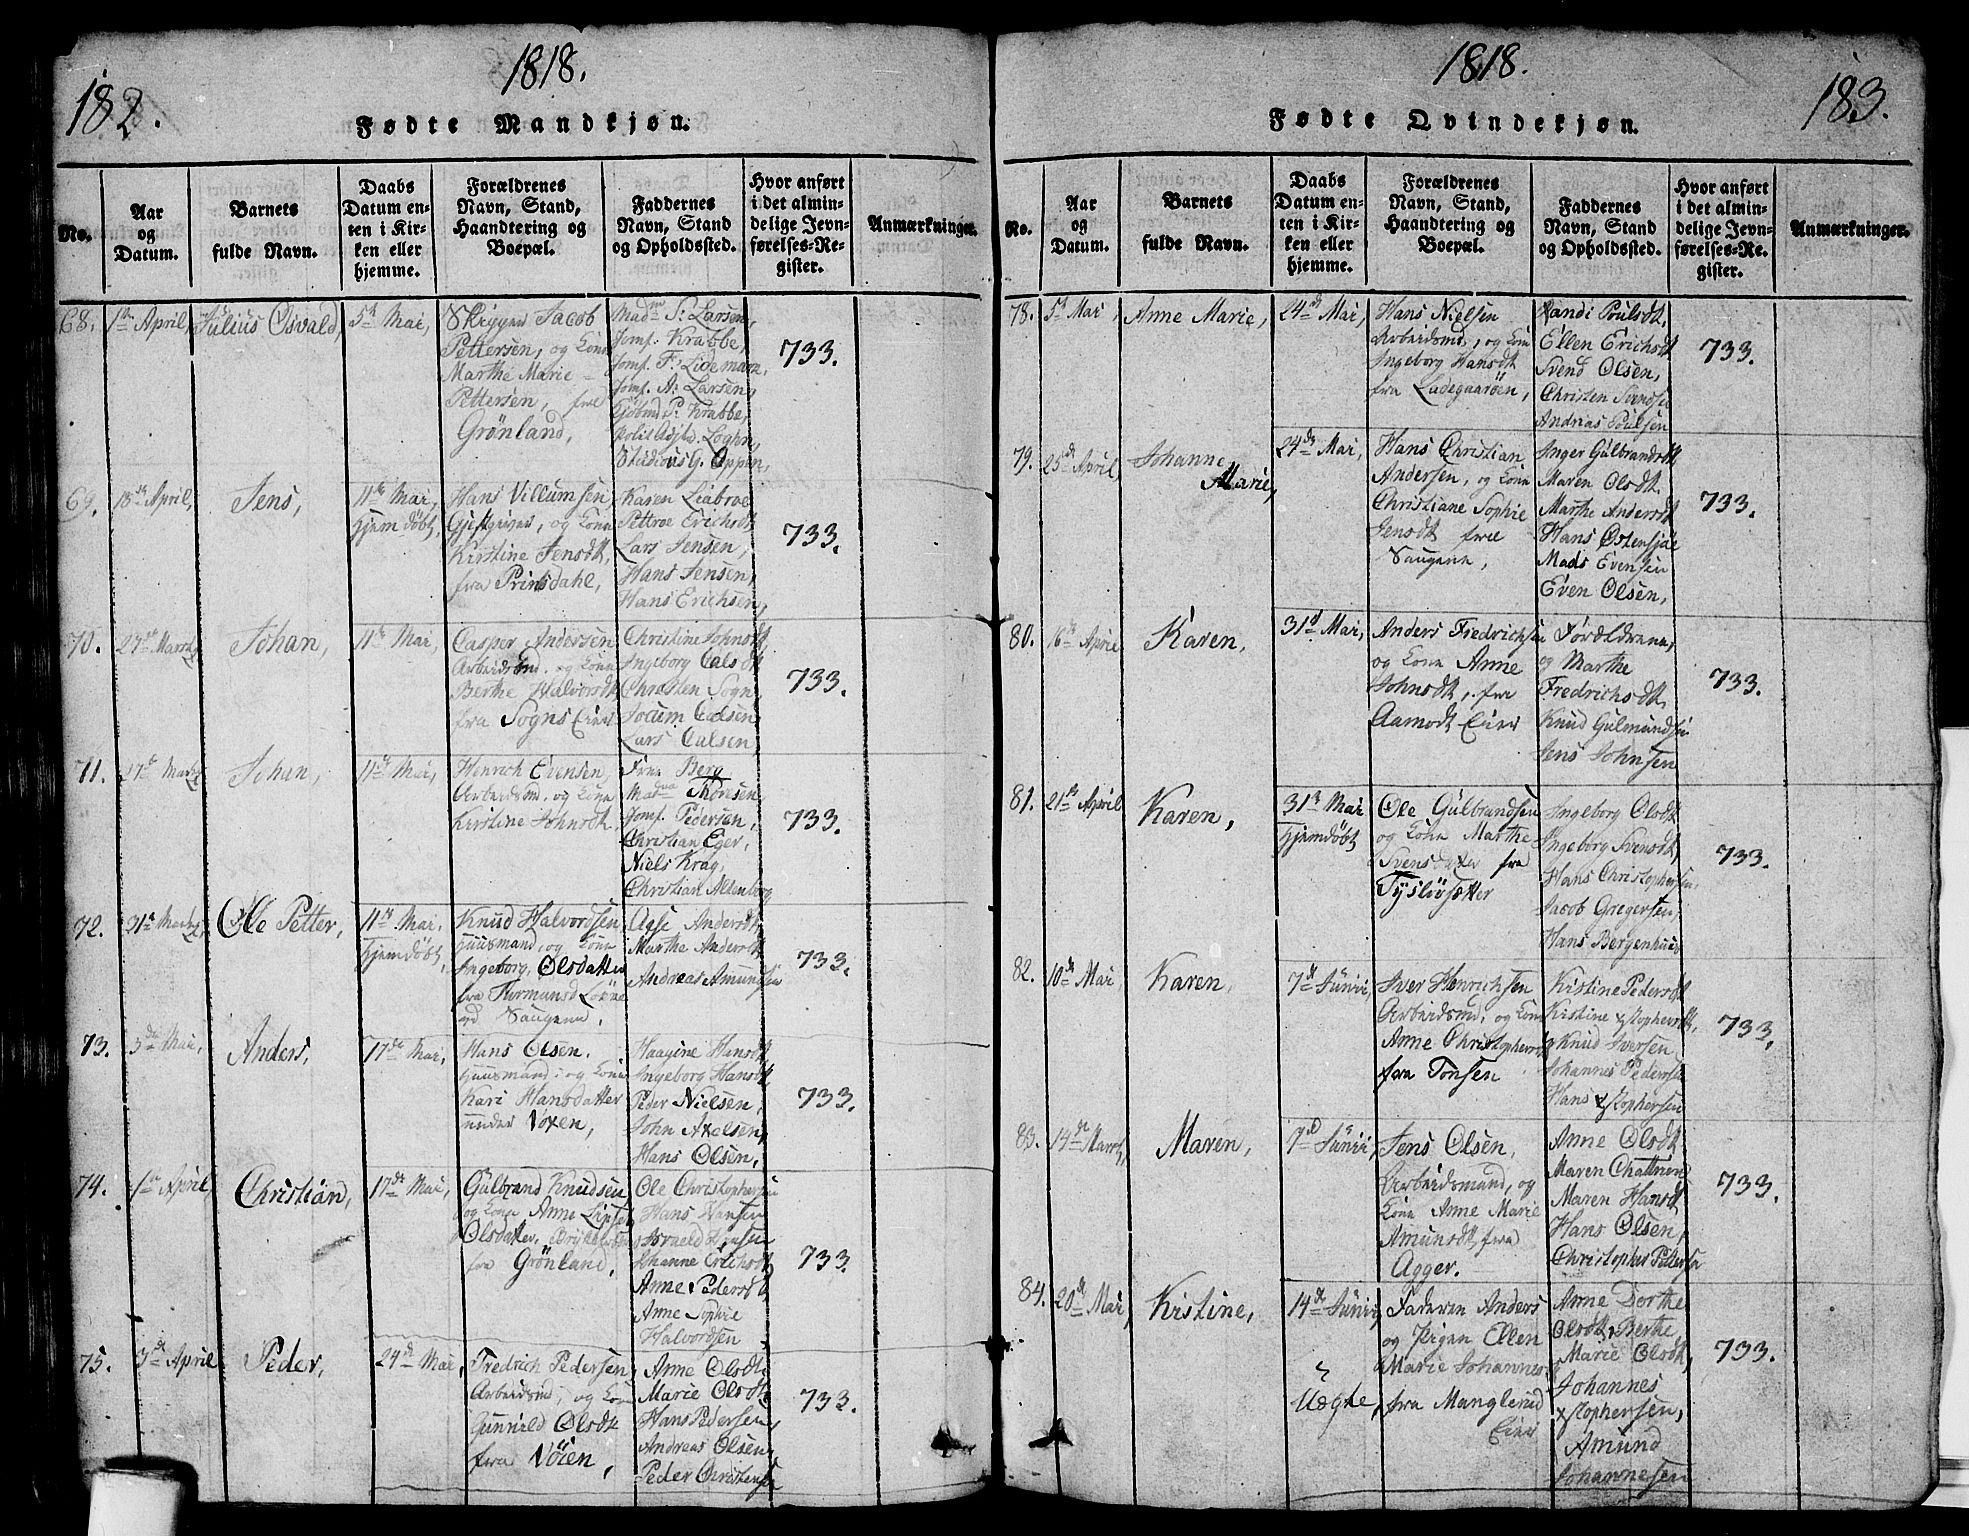 182.
1818.
Fødte Mandkjøn.
No.
Aar
og
Datum.
Barnets
fulde Navn.
Daabs
Datum en-
ten i Kir-
ken eller
hjemme.
Forældrenes
Navn, Stand,
Haandtering og
Boepæl.
Faddernes
Navn, Stand
og Opholdssted.
Hvor anført
i det almin-
delige Jevn-
førelses-Re-
gister.
Anmærkninger.
68.
1ste April,
Julius Osvald,
5te Mai,
Jacob
Pettersen, og Kone
Marthe Marie
Pettersen, fra
Grønland,
Madm P: Larsen,
Jomf. Krabbe,
Jomf. F: Lidemarn,
Jomf. A: Larsen,
P: Krabbe,
Loghn,
G. Oppen,
733.
69.
18de April,
Jens,
11te Mai,
Hjemdøbt,
Hans Villumsen
Gjestgiver, og Kone
Kirstine Jensdt,
fra Prinsdahl,
Karen Liabroe
Pettroe Erichsdt
Lars Jensen,
Hans Jensen,
Hans Erichsen,
733.
70.
27de Martz
Johan,
11te Mai,
Casper Andersen
Arbeidsmd. og Kone
Berthe Halvorsdt
fra Sogns Eier
Christine Johnsdt
Ingeborg Calsdt
Christen Sogn,
Jocum Calsen,
Lars Calsen,
733.
71.
17de Martz
Johan,
11te Mai,
Henrich Evensen,
Arbeidsmd. og Kone
Kirstine Johnsdt.
Frue Berg
Madme Thoresen,
Jomf. Pedersen,
Christian Eger,
Niels Krag,
Christian Altenborg
733.
72.
31te Martz
Ole Petter,
11te Mai,
Hjemdøbt,
Knud Halvordsen
Huusmand, og Kone
Ingeborg Olsdatter
fra
ved Saugene,
Aase Andersdt,
Marthe Andersdt
Andreas Amundsen
733.
73.
3de Mai,
Anders,
17de Mai,
Hans Olsen,
Huusmand, og Kone
Kari Hansdatter
under Voxen,
Haagine Hansdt
Ingeborg Hansdt
Peder Nielsen,
John Axelsen,
Hans Olsen,
733.
74.
1ste April,
Christian,
17de Mai,
Gulbrand Knudsen
og Kone Anne
Olsdatter,
fra Grønland,
Ole Christophersen
Hans Hansen
Johanne Erichsdt
Anne Pedersdt
Anne Sophie
Halvordsen
733.
75.
3de April
Peder,
24de Mai,
Fredrich Pedersen,
Arbeidsmd, og Kone
Gunnild Olsdt
fra Vöien,
Anne Olsdt
Marie Olsdt
Hans Pedersen,
Andreas Olsen,
Peder Christensen
733.
1818.
183.
Fødte Qvindekjøn.
No.
Aar
og
Datum.
Barnets
fulde Navn.
Daabs
Datum en-
ten i Kir-
ken eller
hjemme.
Forældrenes
Navn, Stand,
Haandtering og
Boepæl.
Faddernes
Navn, Stand
og Opholdssted.
Hvor anført
i det almin-
delige Jevn-
førelses-Re-
gister.
Anmærkninger.
78.
5te Mai,
Anne Marie,
24de Mai,
Hans Nielsen
Arbeidsmd, og Kone
Ingeborg Hansdt
fra Ladegaardöen,
Randi Poulsdt,
Ellen Erichsdt
Svend Olsen,
Christen Svendsen
Andrias Poulsen
733.
79.
25de April,
Johanne
Marie,
24de Mai,
Hans Christian
Andersen, og Kone
Christiane Sophie
Jensdt fra
Saugene,
Inger Gulbrandsdt
Maren Olsdt.
Marthe Andersdt
Hans Østensjøe
Mads Evensen
Even Olsen,
733.
80.
16de April
Karen,
31te Mai,
Anders Fredrichsen
og Kone Anne
Johnsdt, fra
Aamodt Eier
Forældrene,
og Marthe
Fredrichsdt,
Knud Gulmundsen
Jens Johnsen
733.
81.
21de April
Karen,
31te Mai
Hjemdøbt
Ole Gulbrandsen
og Kone Marthe
Svensdatter fra
Tyslusætter
Ingeborg Olsdt
Ingeborg Svensdt,
Hans Christophersen,
Jacob Gregersen,
Hans Bergenhuus
733.
82.
10de Mai,
Karen,
7de Junii,
Iver Henrichsen
Arbeidsmd, og Kone
Anne Christophersdt
fra Tonsen
Kistine Pedersdt
Kistine Xstophersdt,
Knud Iversen
Johannes Pedersen
Hans Xstophersen
733.
83.
14de Martz,
Maren,
7de Junii,
Jens Olsen,
Arbeidsmand, og
Kone Anne Marie
Amunsdt fra
Agger.
Anne Olsdt
Maren Chattrine
Maren Hansdt
Hans Olsen,
Christopher Pettersen
733.
84.
20de Mai,
Kistine,
14de Junii,
Uægte,
Faderen Anders
og Pigen Ellen
Marie Johannes-
fra Manglerud
Eier
Anne Dorthe
Olsdt, Berthe
Marie Olsdt,
Johannes
Xstophersen,
Amund
Johannesen
733.